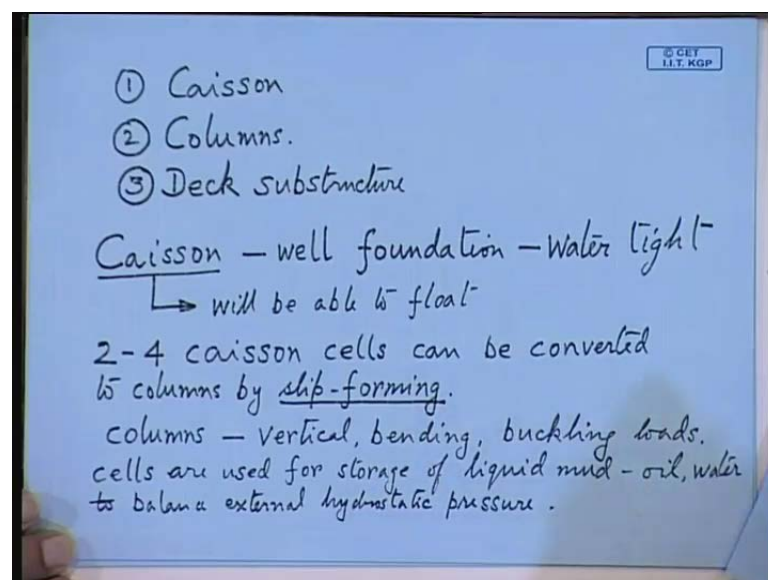 © CET
I.I.T. KGP
① Caisson
② Columns.
③ Deck substructure
Caisson – well foundation – Water tight
→ will be able to float
2-4 caisson cells can be converted
to columns by slip-forming.
columns – vertical, bending, buckling loads.
cells are used for storage of liquid mud – oil, water
to balance external hydrostatic pressure.